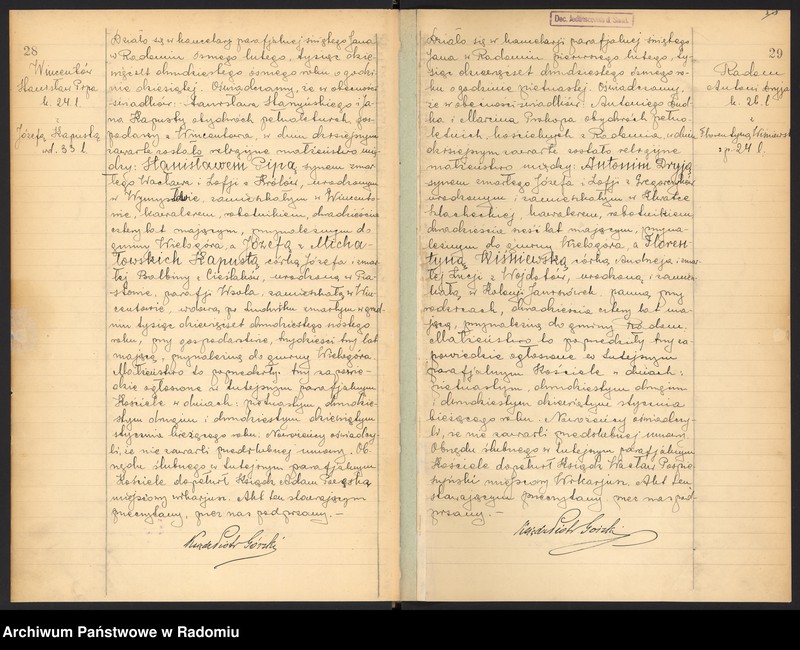 28
Wincentów
Stanisław Pipa
l. 24 l.
i
Józefa Kapusta
wd. 33 l.
Działo się w kancelarji parafjalnej świętego Jana
w Radomiu ósmego lutego, tysiąc dzie-
więćset dwudziestego ósmego roku o godzi-
nie dziesiątej. Oświadczamy, że w obecności
świadków: Stanisława i Ja-
na Kapusty obydwóch pełnoletnich, gos-
podarzy z Wincentowa, w dniu dzisiejszym
zawarte zostało religijne małżeństwo mię-
dzy: Stanisławem Pipą synem zmar-
łego Wacława i Zofji z Królów, urodzonym
w zamieszkałym w Wincento-
wie, kawalerem, robotnikiem, dwadzieścia
cztery lat mającym, przynależnym do
gminy Wielogóra, a Józefą z Micha-
łowskich Kapustą córką Józefa i zmar-
łej Balbiny z Cieślaków, urodzoną w
parafji Wsola, zamieszkałą w Win-
centowie, wdową po Ludwiku zmarłym w grud-
niu tysiąc dziewięćset dwudziestego szóstego
roku, przy gospodarstwie, trzydzieści trzy lat
mającą, przynależną do gminy Wielogóra.
Małżeństwo to poprzedziły trzy zapowie-
dzie ogłoszone w tutejszym parafjalnym
Kościele w dniach: piętnastym, dwudzie-
stym drugim i dwudziestym dziewiątym
stycznia bieżącego roku. Nowożeńcy oświadczy-
li, że nie zawarli przedślubnej umowy. Ob-
rzędu ślubnego w tutejszym parafjalnym
Kościele dopełnił Ksiądz Adam
miejscowy wikarjusz. Akt ten stawającym
przeczytany, przez nas podpisany. –
Ksiądz Piotr Górski
Dec. Jednoczesna d. Rusk.
29
Radom
Antoni Dryja
k. 26 l.
i
Florentyna Wiśniewska
p. 24 l.
Działo się w kancelarji parafjalnej świętego
Jana w Radomiu pierwszego lutego, ty-
siąc dziewięćset dwudziestego ósmego ro-
ku o godzinie piętnastej. Oświadczamy,
że w obecności świadków: Antoniego
ka i Marcina Prokopa obydwóch pełno-
letnich, kościelnych z Radomia, w dniu
dzisiejszym zawarte zostało religijne
małżeństwo między: Antonim Dryją
synem zmarłego Józefa i Zofji z Gregorczyków
urodzonym i zamieszkałym w
Szlacheckiej, kawalerem, robotnikiem
dwadzieścia sześć lat mającym, przyna-
leżnym do gminy Wielogóra, a Floren-
tyną Wiśniewską córką i zmar-
łej Łucji z Wojdatów, urodzoną i zamiesz-
kałą w Kolonji Janiszówek, panną, przy
rodzicach, dwadzieścia cztery lat ma-
jącą, przynależną do gminy Radom.
Małżeństwo to poprzedziły trzy za-
powiedzie ogłoszone w tutejszym
parafjalnym Kościele w dniach:
piętnastym, dwudziestym drugim
i dwudziestym dziewiątym stycznia
bieżącego roku. Nowożeńcy oświadczy-
li, że nie zawarli przedślubnej umowy.
Obrzędu ślubnego w tutejszym parafjalnym
Kościele dopełnił Ksiądz Wacław
miejscowy Wikarjusz. Akt ten
stawającym przeczytany, przez nas pod-
pisany. –
Ksiądz Piotr Górski
Archiwum Państwowe w Radomiu